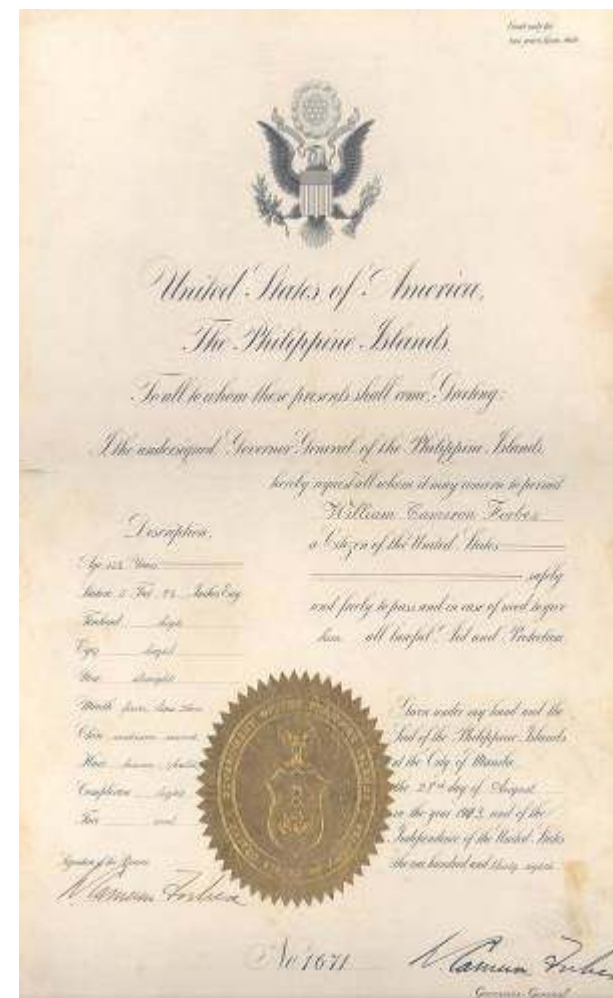 Good only for
two years from date
United States of America,
The Philippine Islands,
To all to whom these presents shall come, Greeting:
I the undersigned Governor General of the Philippine Islands,
hereby request all whom it may concern to permit
William Cameron Forbes
a Citizen of the United States
safely
and freely to pass and in case of need to give
him all lawful Aid and Protection
Description,
Age Years
Stature 5 Feet Inches Eng
Forehead high
Eyes
Nose straight
Mouth
Chin
Hair
Complexion
Face oval
Signature of the Bearer
W Cameron Forbes
Given under my hand and the
Seal of the Philippine Islands
at the City of Manila
the day of August
in the year 1913, and of the
Independence of the United States
the one hundred and thirty eighth
No 1671
W Cameron Forbes
Governor-General